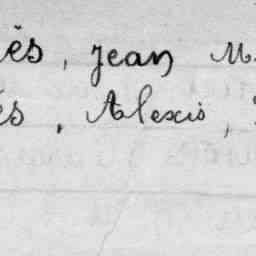 ès, Jean M
és, Alexis,